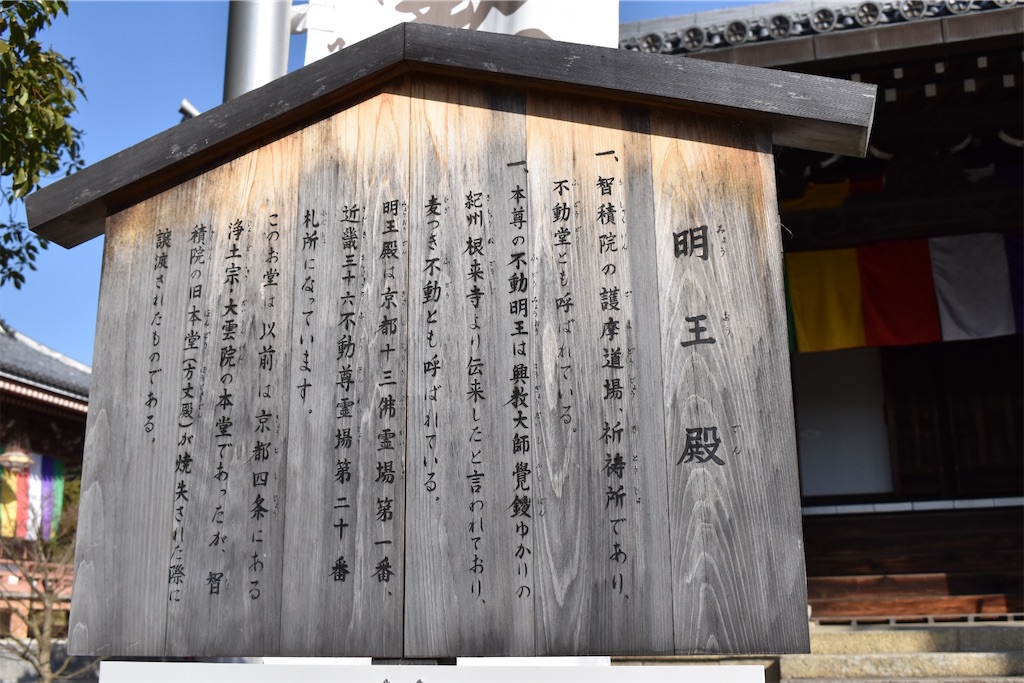 明王殿
一、智積院の護摩道場、祈祷所であり、
不動堂とも呼ばれている。
一、本尊の不動明王は興教大師覺鑁ゆかりの
紀州根来寺より伝来したと言われており、
麦つき不動とも呼ばれている。
明王殿は京都十三佛霊場第一番、
近畿三十六不動尊霊場第二十番
札所になっています。
このお堂は以前は京都四条にある
浄土宗・大雲院の本堂であったが、智
積院の旧本堂(方丈殿)が焼失された際に
譲渡されたものである。